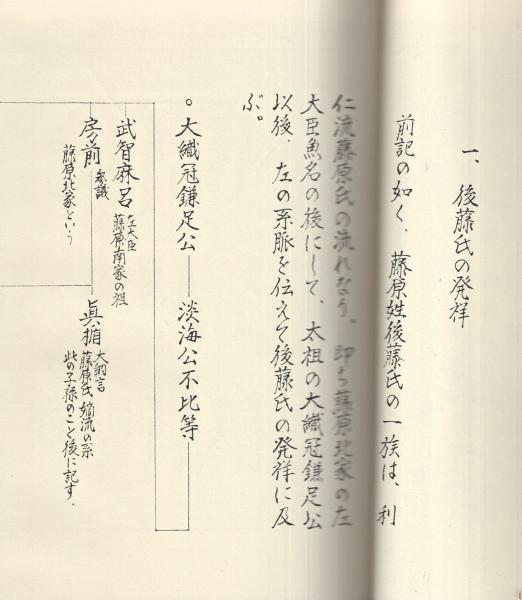 一、後藤氏の発祥
前記の如く、藤原姓後藤氏の一族は、利
仁流藤原氏の流れなり。即ち藤原北家の左
大臣魚名の後にして、太祖の大織冠鎌足公
以後、左の系脈を伝えて後藤氏の発祥に及
ぶ。
○大織冠鎌足公——淡海公不比等
武智麻呂
左大臣
藤原南家の祖
房前
参議
藤原北家という
眞楯
大納言
藤原氏嫡流の系
此の子孫のこと後に記す.